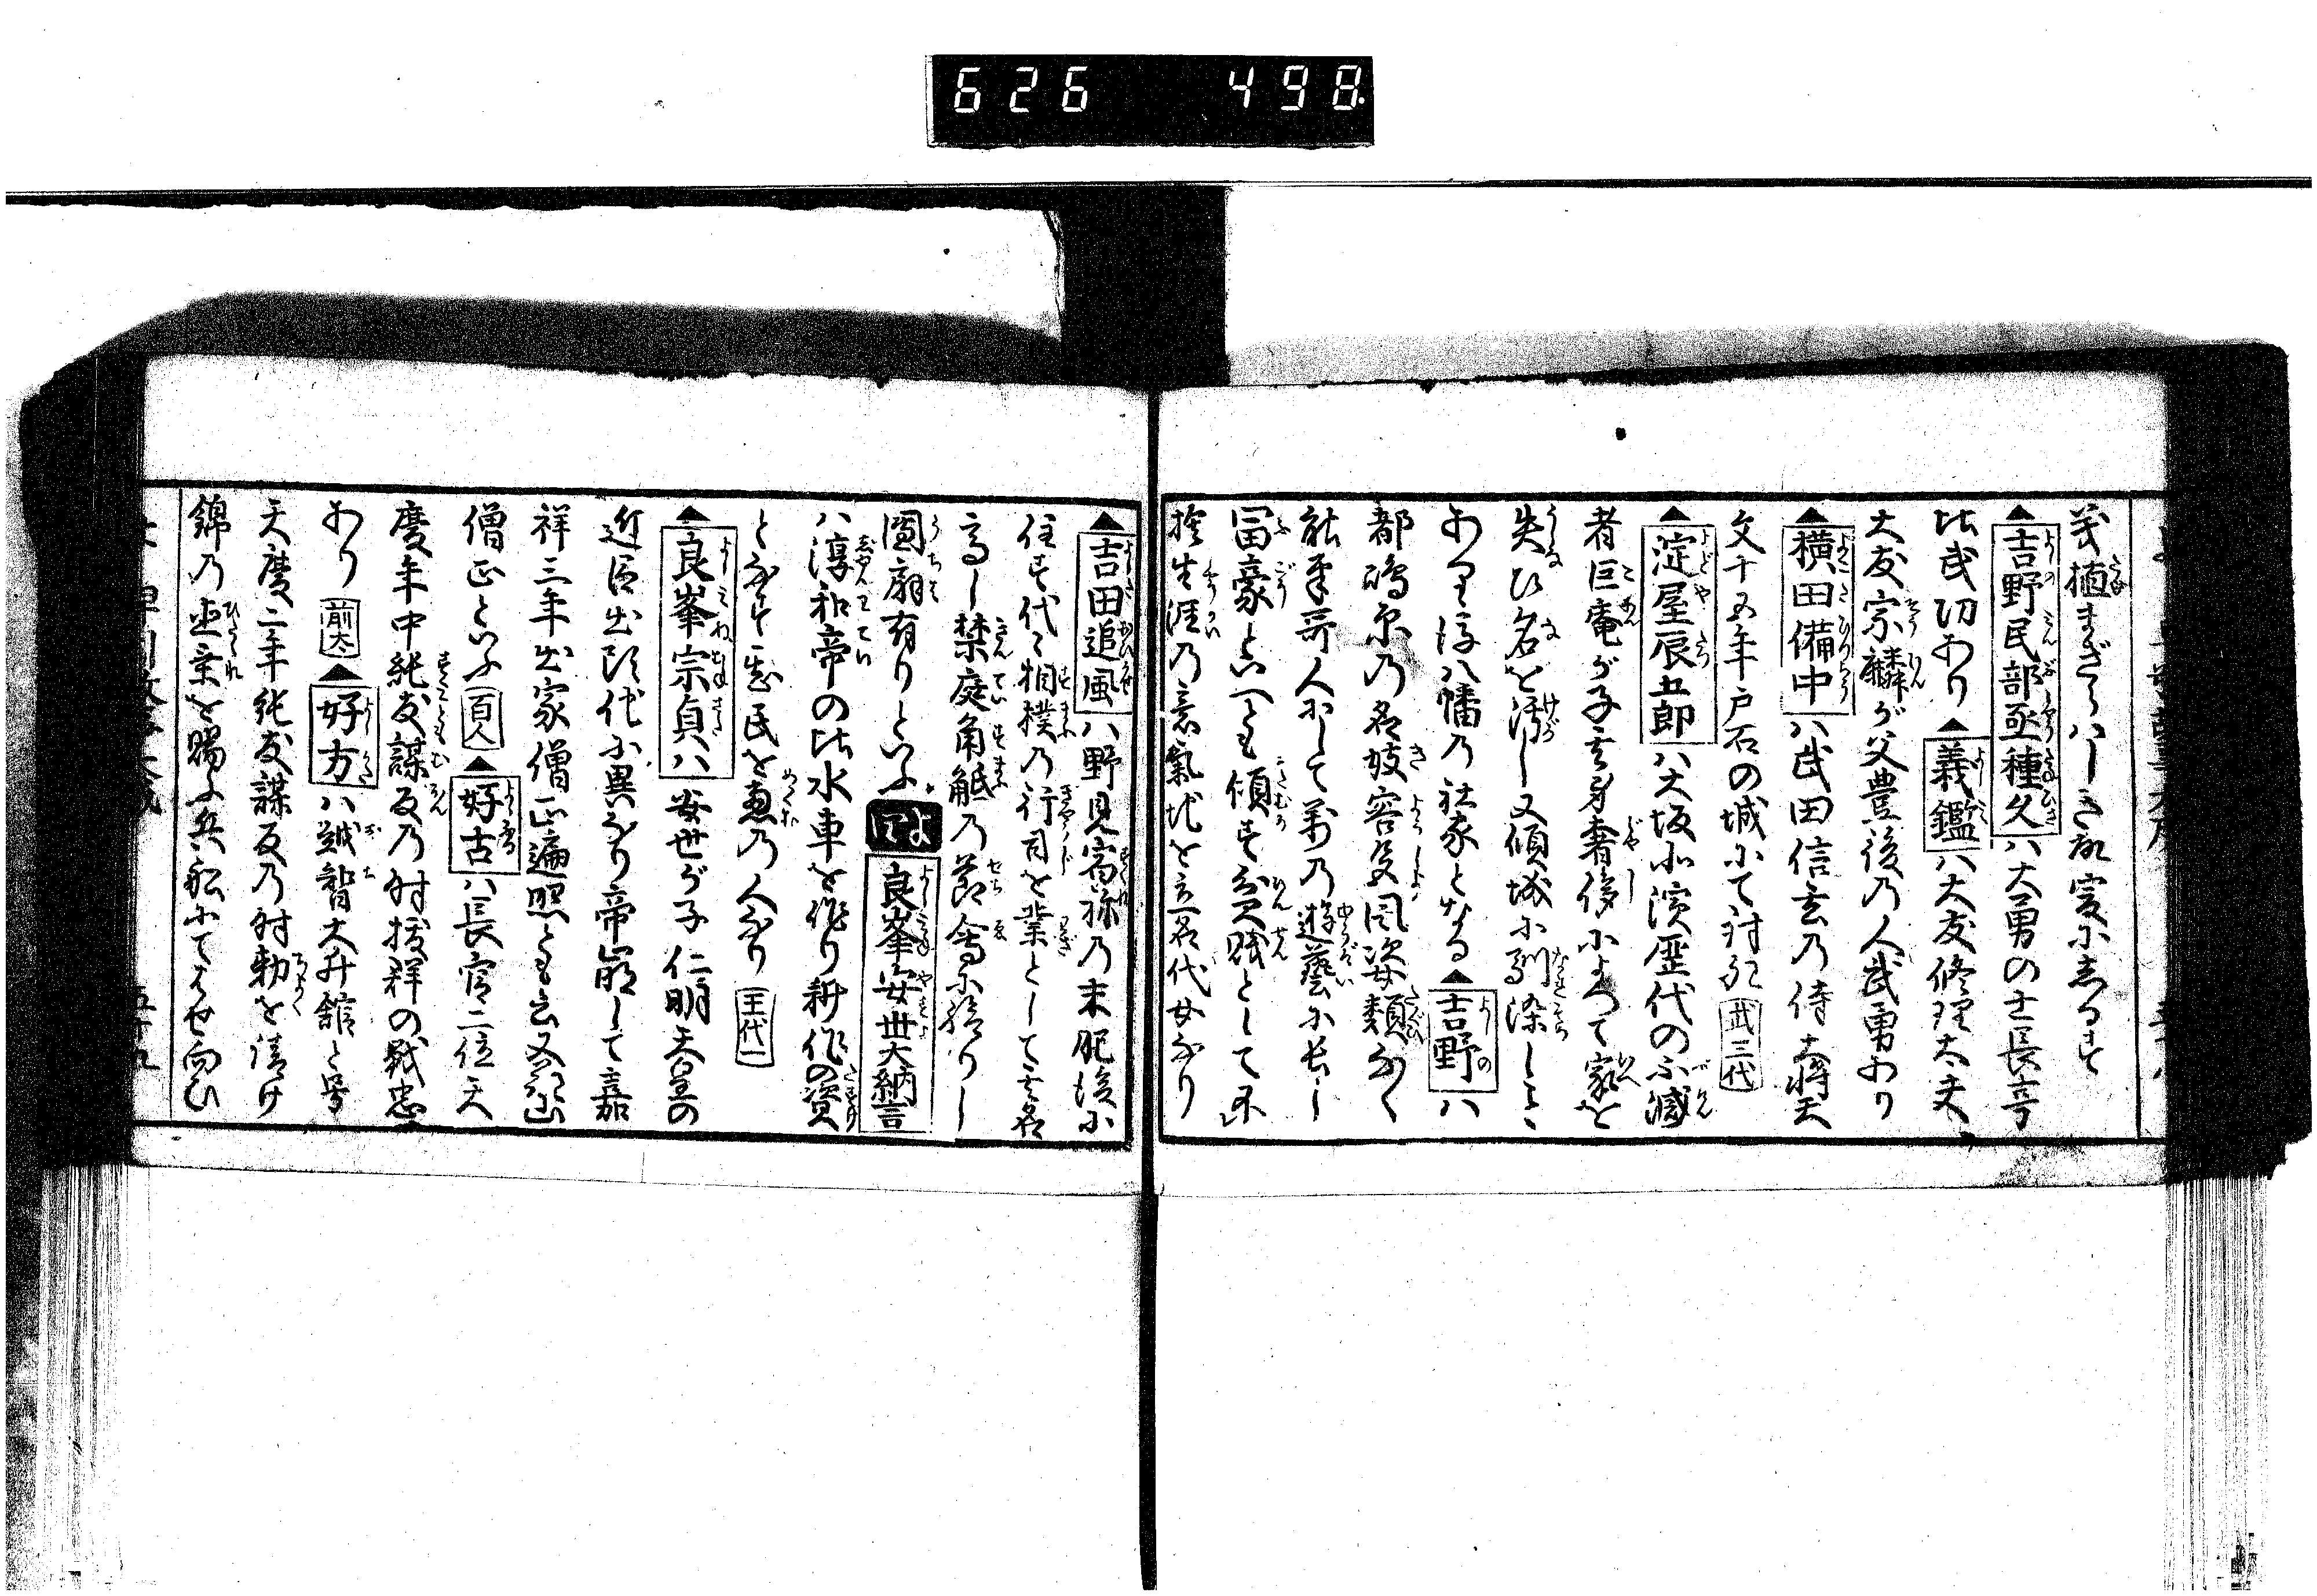 626 498
義植まぎらハしき故爰に志るさず
▲吉野民部丞種久ハ大勇の士長享
比武功あり▲義鑑ハ大友修理太夫
大友宗麟が父豊後の人武勇あり
▲横田備中ハ武田信玄乃侍大将天
文十五年戸石の城にて討死 武三代
▲淀屋辰五郎ハ大坂に演歴代のふ
者巨庵が子にて奢侈によつて家を
失ひ名を汚し又傾城に馴染しこと
あり淳八幡乃社家となる▲吉野ハ
都嶋原乃名妓容皃風姿類なく
能筆哥人にして萬乃遊藝に長し
冨豪といへども傾ず貧賤として不
捨生涯乃意氣地を立名代女なり
▲吉田追風ハ野見宿祢乃末肥後に
住す代々相撲乃行司を業として名
高し禁庭角觝乃節會に預りし
團扇有りといふ よ 良峯安世大納言
ハ淳和帝の比水車を作り耕作の資
となす民を恵乃人なり 王代一
▲良峯宗貞ハ安世が子仁明天皇の
近臣出頭代に異なり帝崩して嘉
祥三年出家僧正遍照とも云又花山
僧正といふ 百人▲好古ハ長官二位天
慶年中純友謀反乃討援群の戦忠
あり 前太▲好方ハ越智大舘と号
天慶二年純友謀反乃討勅を請け
錦乃直垂を賜ふ兵船にてはせ向ひ